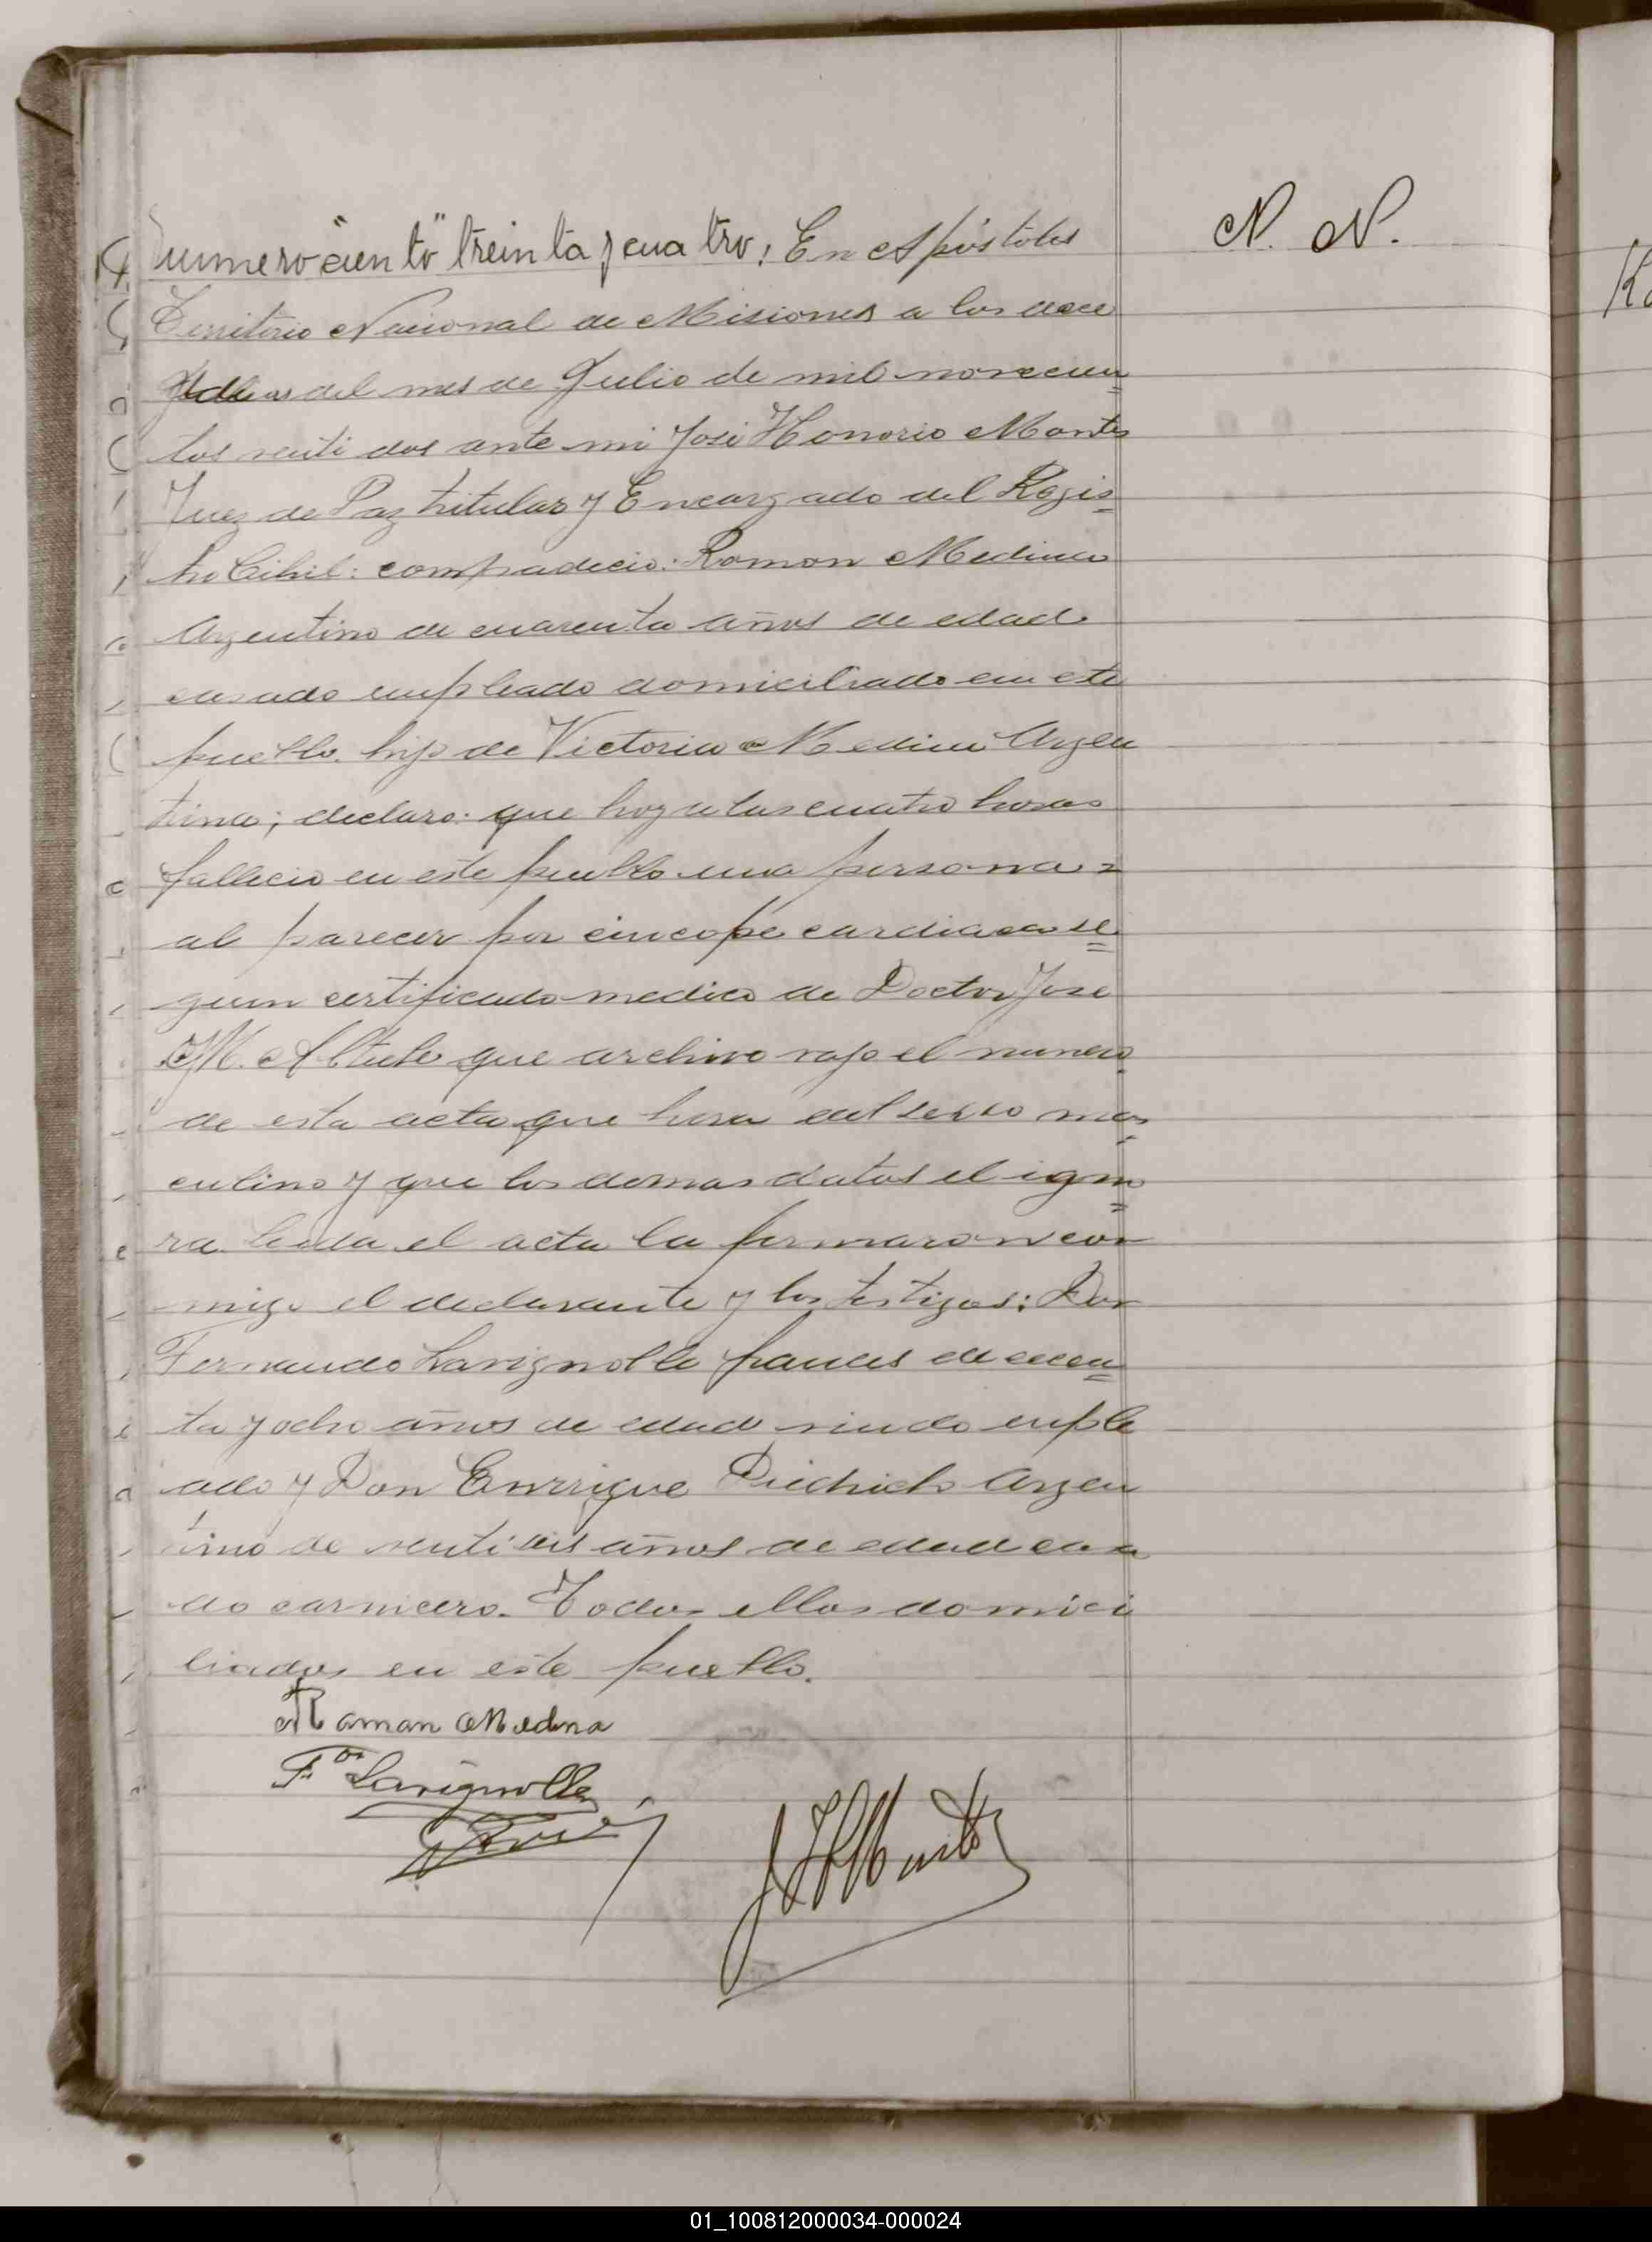 N. N.
Numero "ciento" treinta y cuatro: En Apóstoles
Territorio Nacional de Misiones a los doce
dias del mes de Julio de mil novecien=
tos venti dos ante mi José Honorio Montes
Juez de Paz titular y Encargado del Regis=
tro Cibil: compadecio: Ramon Medina
Argentino de cuarenta años de edad
casado empleado domiciliado en este
pueblo. hijo de Victoria Medina Argen
tina; declaro: que hoy a las cuatro horas
fallecio en este pueblo una persona =
al parecer por cincope cardiaca se=
gum certificado medico de Doctor Jose
M. que archivo vajo el numero
de esta acta que hera del secso mas=
culino y que los demas datos el igno=
ra. Leida el acta la firmaron con
migo el declarante y los testigos: Don
Fernando Lavignolle frances de
ta y ocho años de edad viudo emple
ado y Don Enrrique Diedrich Argen
tino de venti seis años de edad casa
do carnicero. Todos ellos domici
liados en este pueblo.
Raman Medina
F.do Lavignolle
J H Montes
01_100812000034-000024